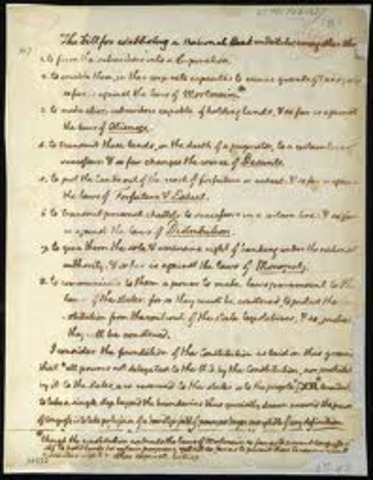 The bill for establishing a National Bank undertakes among other things
1. to form the subscribers into a Corporation.
2. to enable them, in their corporate capacities to receive grants of land; and
so far is against the laws of Mortmain.*
3. to make alien subscribers capable of holding lands, & so far is against
the laws of Alienage.
4. to transmit these lands, on the death of a proprietor, to a certain line of
successors: & so far changes the course of Descents.
5. to put the lands out of the reach of forfeiture or escheat, & so far is against
the laws of Forfeiture & Escheat.
6. to transmit personal chattels to successors in a certain line: & so far
is against the laws of Distribution.
7. to give them the sole & exclusive right of banking under the national
authority: & so far is against the laws of Monopoly.
8. to communicate to them a power to make laws paramount to the
laws of the states: for so they must be construed, to protect the
institution from the control of the state legislatures; & so, probably
they will be construed.
I consider the foundation of the Constitution as laid on this ground
that 'all powers not delegated to the U.S. by the Constitution, nor prohibited
by it to the states, are reserved to the states or to the people'
to take a single step beyond the boundaries thus specially drawn around the powers
of Congress, is to take possession of a boundless field of power, no longer susceptible of any definition.